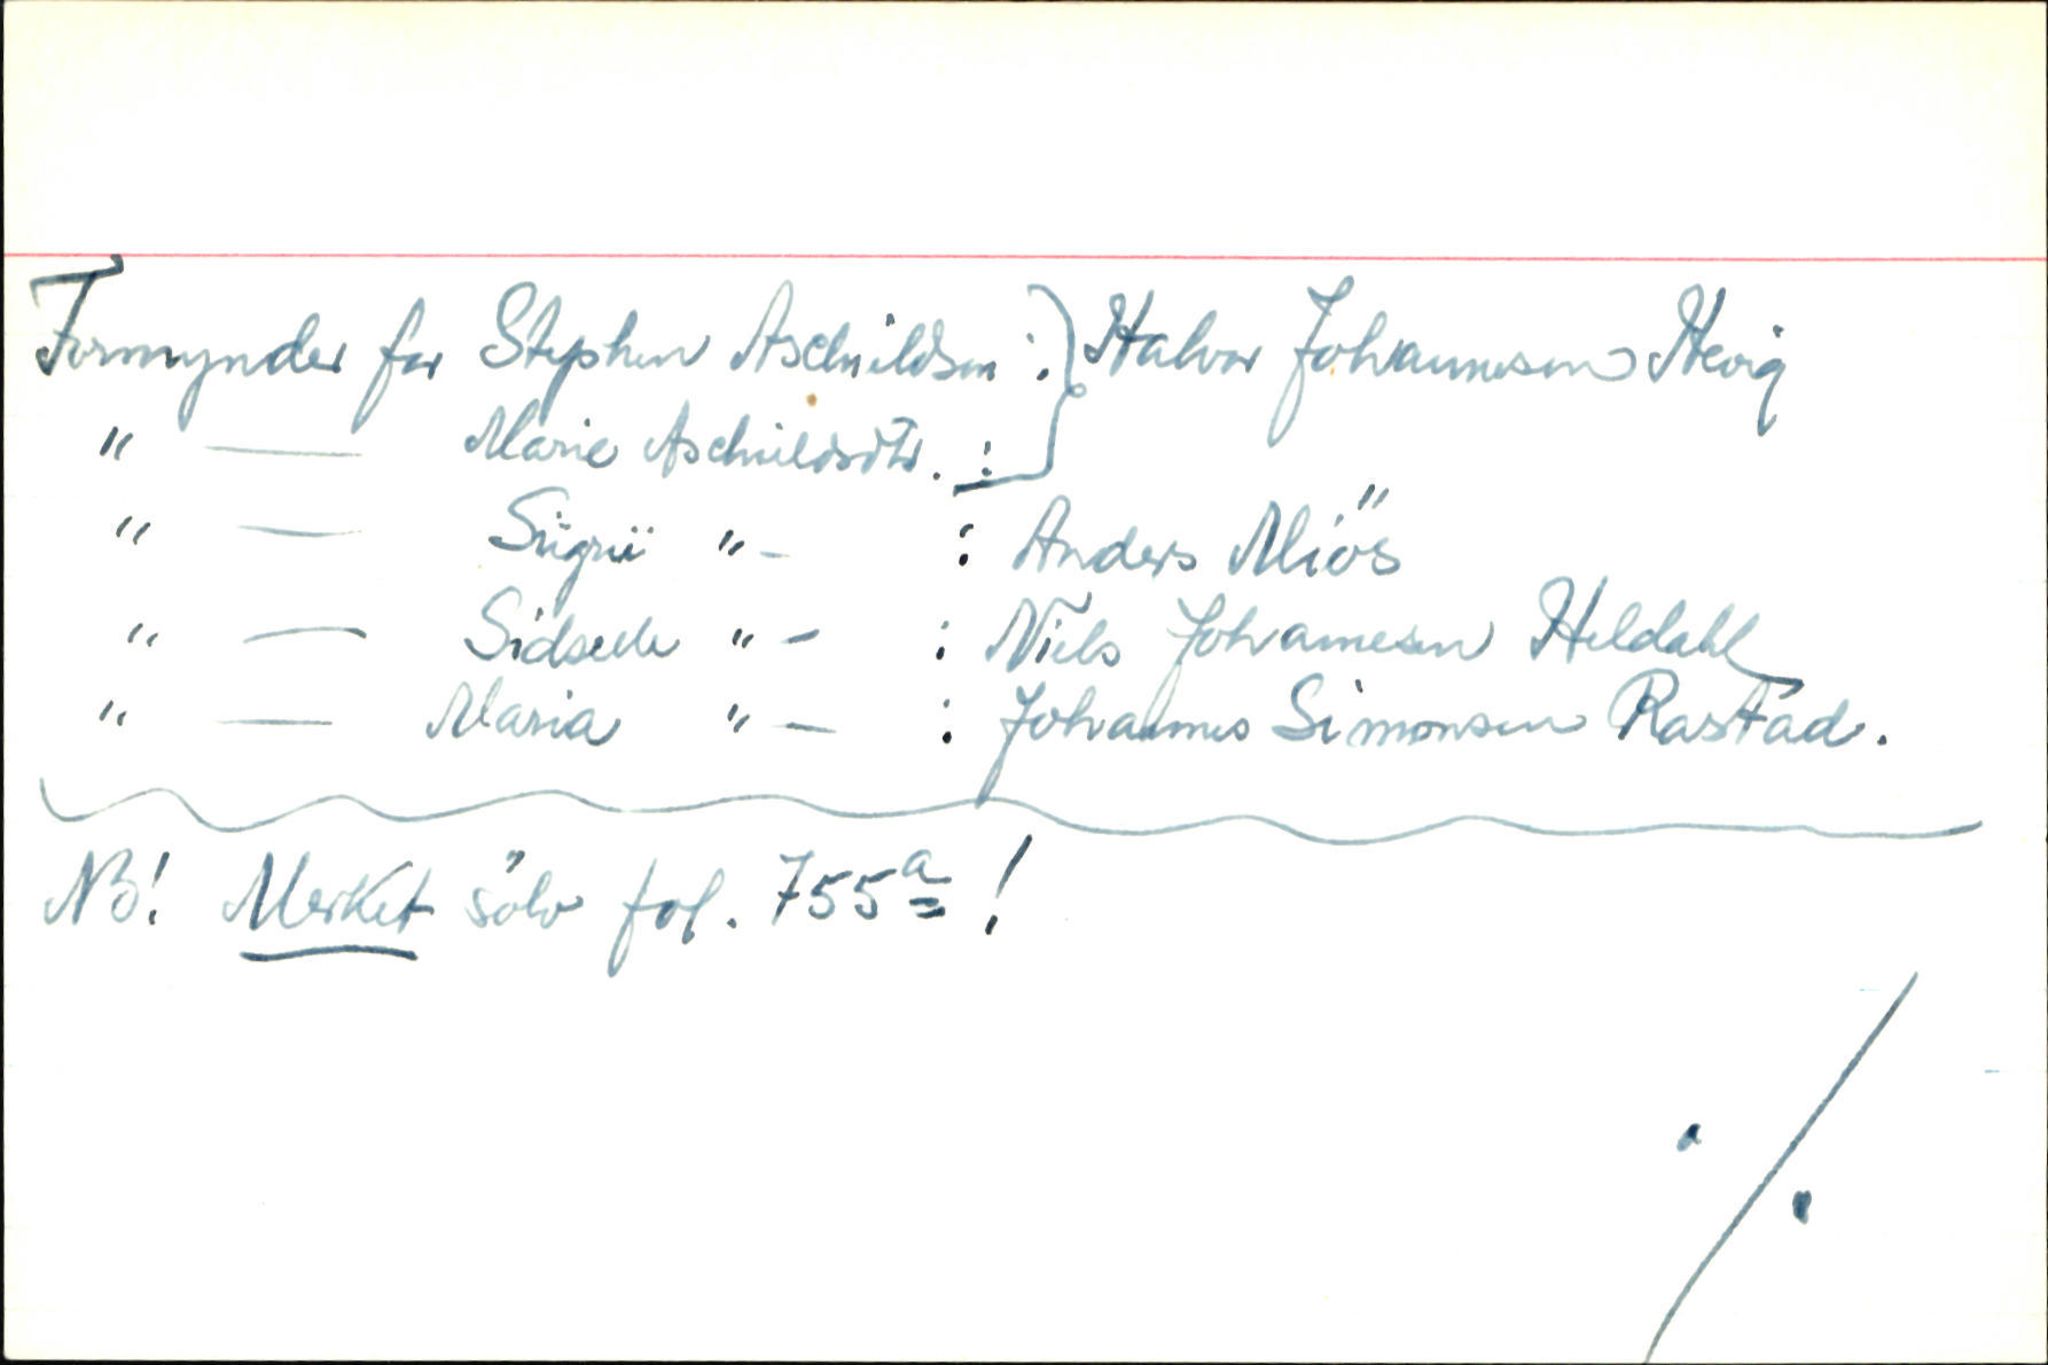 Formynder for Stephen Aschildsen : } Halvor Johannesen Hevig
" — Marie Aschildsdtr. :
" — Siigrii " – : Anders Miös
" — Sidselle " – : Niels Johannesen Heldahl
" — Maria " – : Johannes Simonsen Rastad.
NB! Merket sölv fol. 755a !